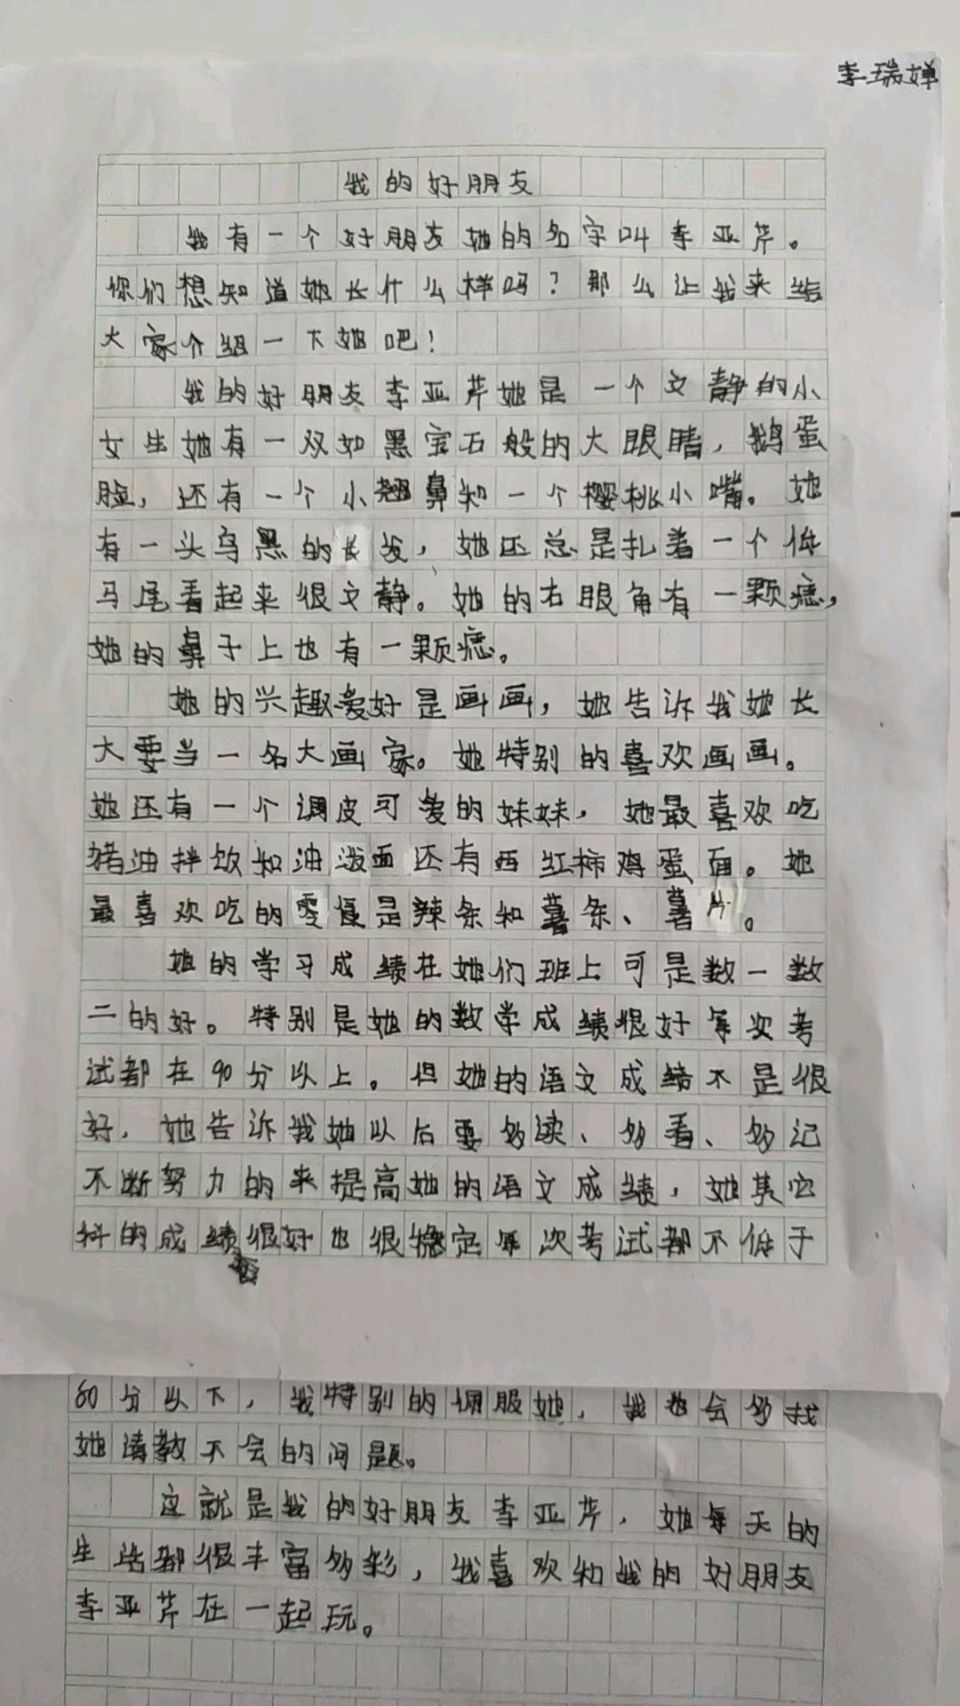 李瑞婵
我的好朋友
我有一个好朋友她的名字叫李亚芹。
你们想知道她长什么样吗？那么让我来给
大家介绍一下她吧！
我的好朋友李亚芹她是一个文静的小
女生她有一双如黑宝石般的大眼睛，鹅蛋
脸，还有一个小翘鼻和一个樱桃小嘴。她
有一头乌黑的长发，她还总是扎着一个低
马尾看起来很文静。她的右眼角有一颗痣，
她的鼻子上也有一颗痣。
她的兴趣爱好是画画，她告诉我她长
大要当一名大画家。她特别的喜欢画画。
她还有一个调皮可爱的妹妹，她最喜欢吃
猪油拌饭和油泼面还有西红柿鸡蛋面。她
最喜欢吃的零食是辣条和薯条、薯片。
她的学习成绩在她们班上可是数一数
二的好。特别是她的数学成绩很好每次考
试都在90分以上。但她的语文成绩不是很
好，她告诉我她以后要多读、多看、多记
不断努力的来提高她的语文成绩，她其它
科的成绩很好也很稳定每次考试都不低于
80分以下，我特别的佩服她，我也会多找
她请教不会的问题。
这就是我的好朋友李亚芹，她每天的
生活都很丰富多彩，我喜欢和我的好朋友
李亚芹在一起玩。